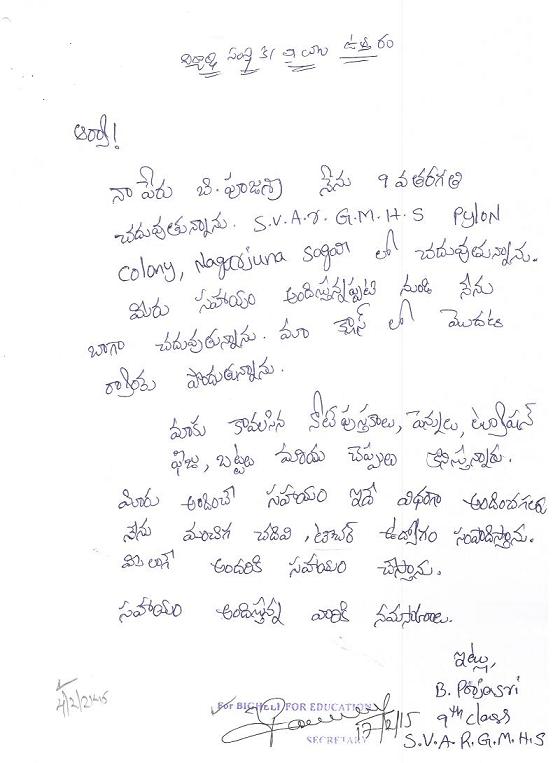 విద్యార్థి సంస్థ కి వ్రాయు ఉత్తరం
ఆర్యా!
నా పేరు బి. పూజశ్రీ నేను 9 వ తరగతి
చదువుతున్నాను. S.V.A.R. G.M.H.S Pylon
Colony, Nagarjuna Sagar లో చదువుతున్నాను.
మీరు సహాయం అందిస్తున్నప్పటి నుండి నేను
బాగా చదువుతున్నాను. మా క్లాస్ లో మొదట
ర్యాంకు పొందుతున్నాను.
మాకు కావలసిన నోట్ పుస్తకాలు, పెన్నులు, ట్యూషన్
ఫీజు, బట్టలు మరియు చెప్పులు కొనిస్తున్నారు.
మీరు అందించే సహాయం ఇదే విధంగా అందించగలరు
నేను మంచిగ చదివి, టీచర్ ఉద్యోగం సంపాదిస్తాను.
మీ లాగే అందరికి సహాయం చేస్తాను.
సహాయం అందిస్తున్న వారికి నమస్కారాలు.
ఇట్లు,
B. Pojasri
9th class
S.V.A.R.G.M.H.S
For BIGHELP FOR EDUCATION
17/2/15
SECRETARY